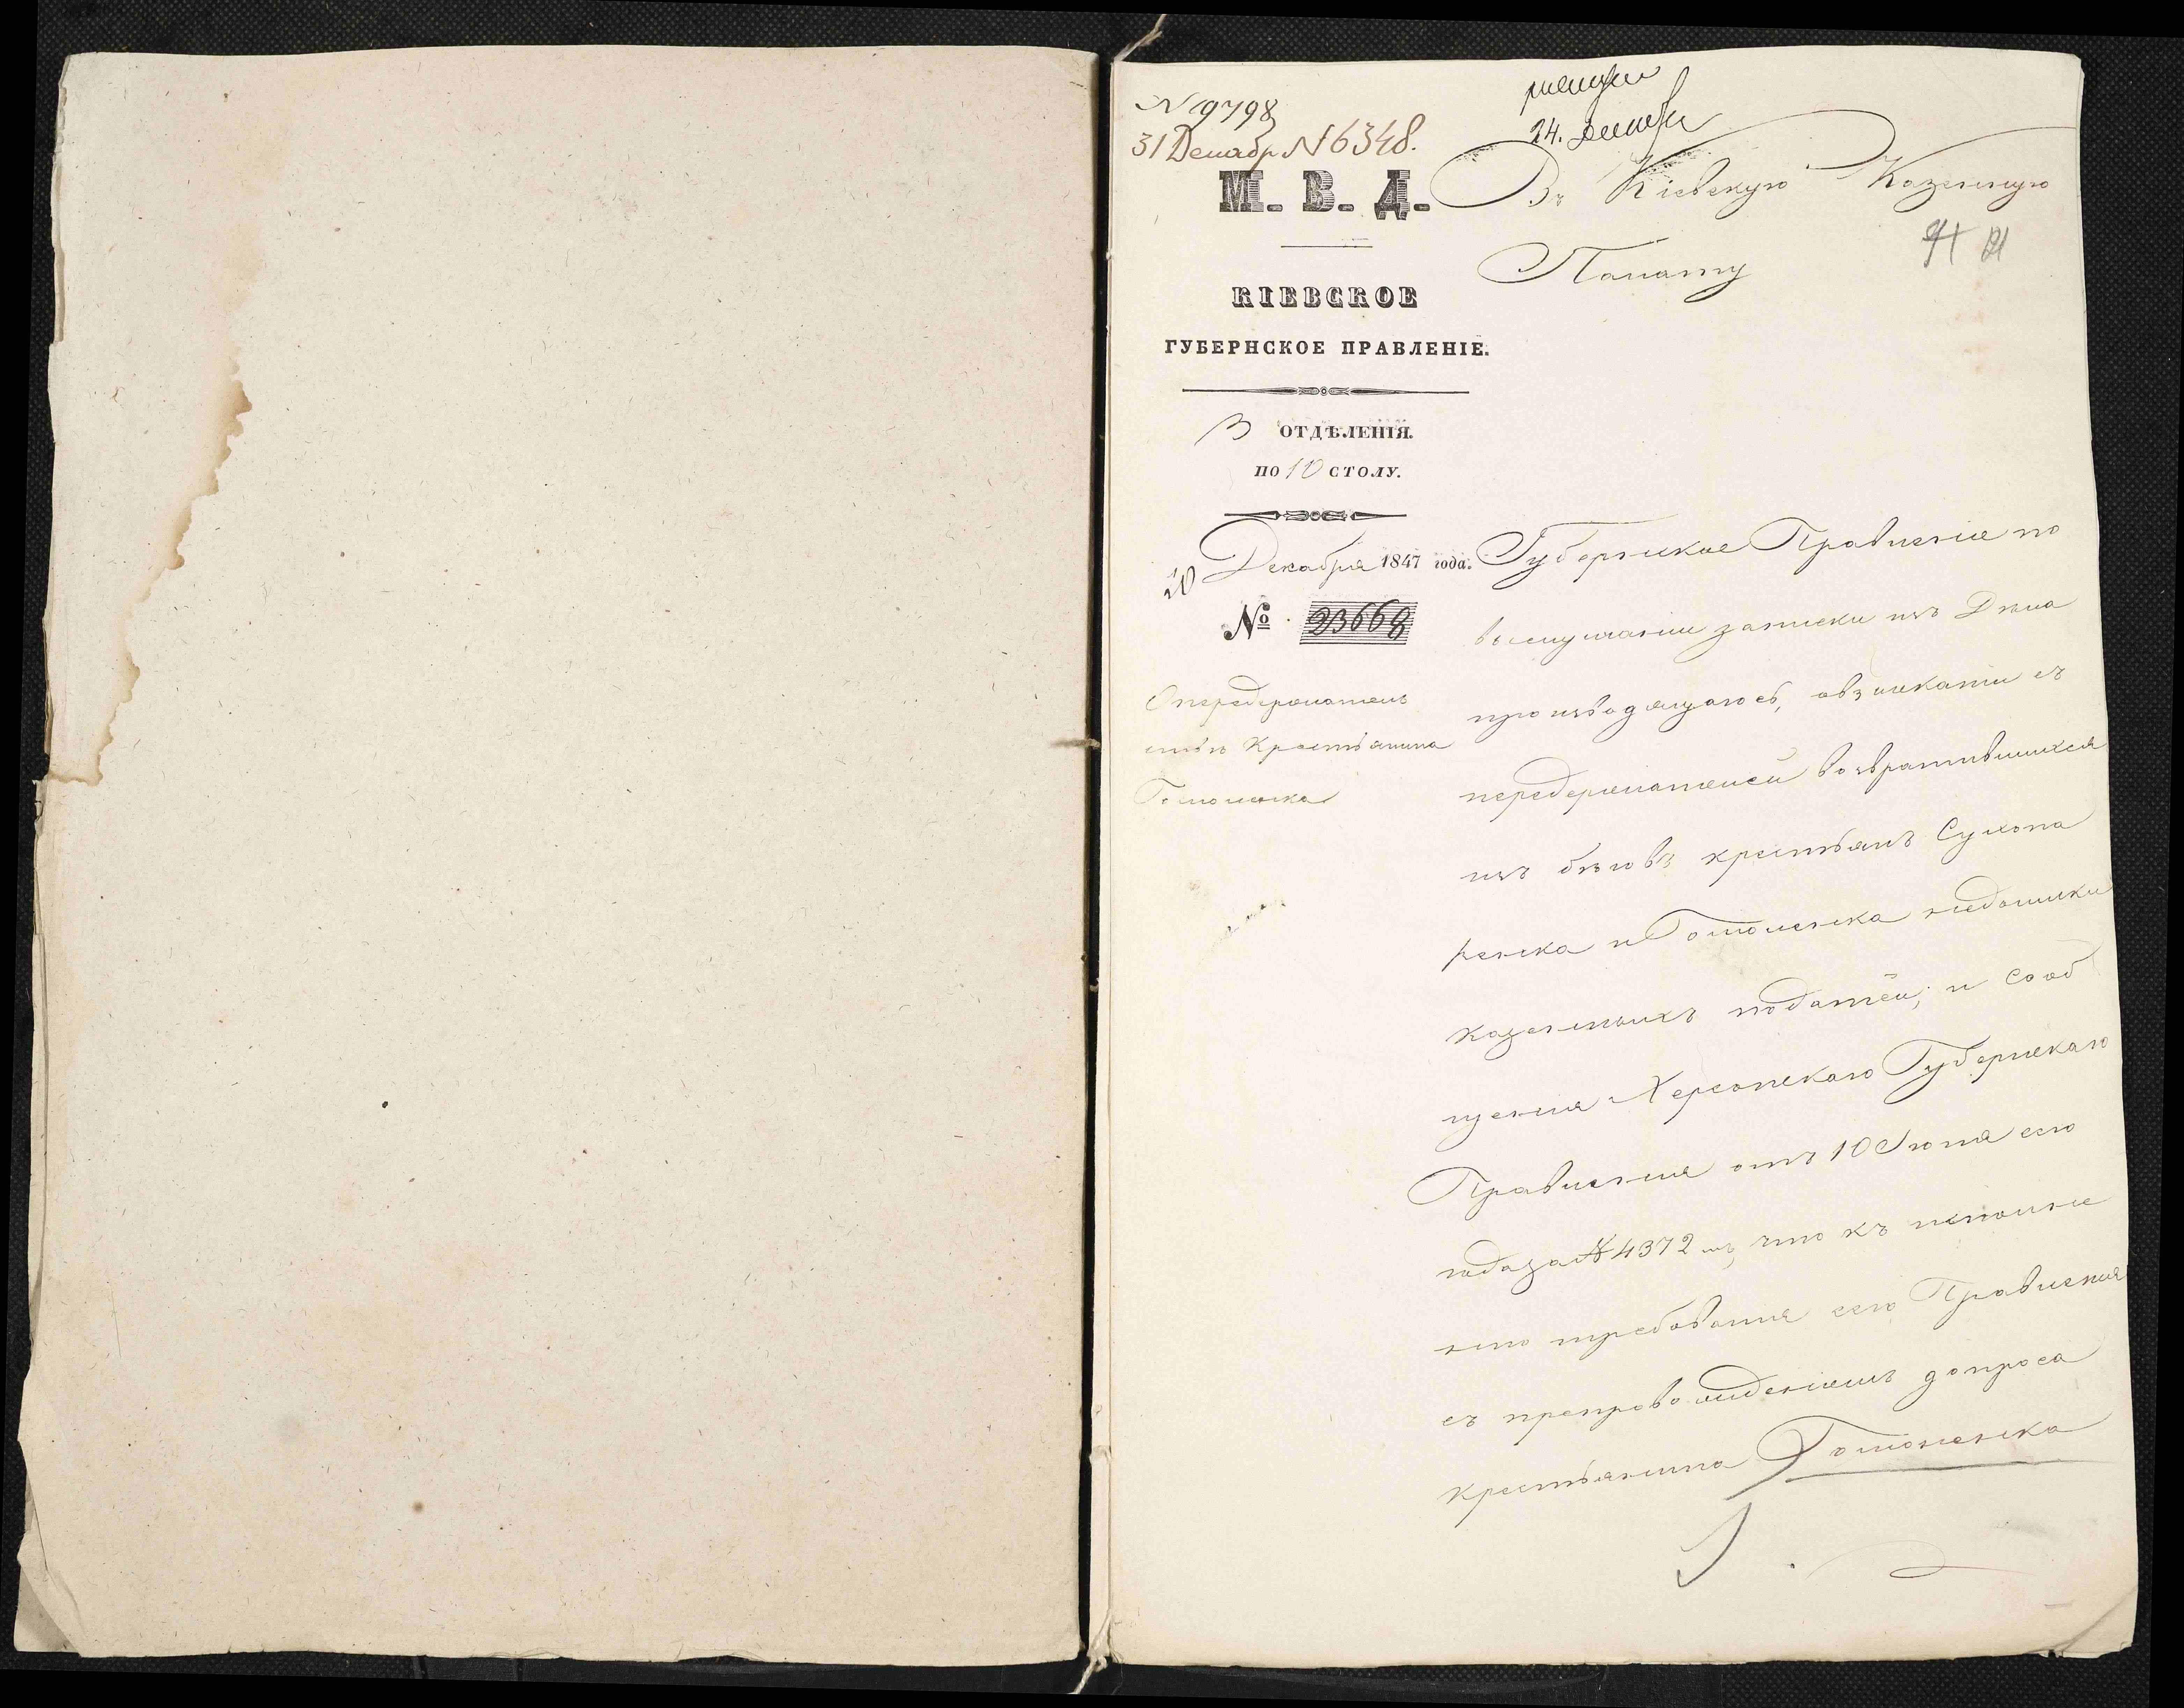 N 9798
31 Декабр N 6348.
24. Декабр
М. В. Д.
Въ Кіевскую Казенную
Палату
КІЕВСКОЕ
ГУБЕРНСКОЕ ПРАВЛЕНІЕ.
3 ОТДѢЛЕНІЯ.
ПО 10 СТОЛУ.
20 Декабря 1847 года.
№ 23668
О передержатель
ствѣ Крестьянина
Губернское Правленіе по
выслушаніи записки изъ Дѣла
производящагося, о взысканіи съ
передержателей возвратившихся
изъ бѣговъ крестьянъ Сухопа
ренка и недоимки
казенныхъ податей, и сооб
щенія Херсонскаго Губернскаго
Правленія отъ 10 Іюня сего
года за № 4372 мъ, что къ исполне
нію требованія сего Правленія
съ препровожденіемъ допроса
крестьянина